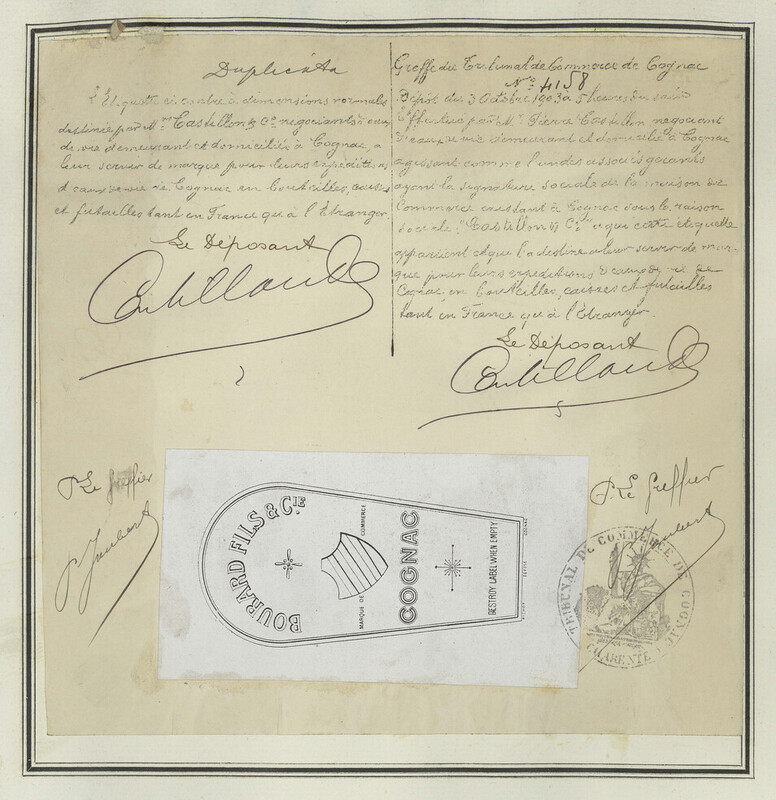 Duplicata
L'Etiquette ci contre à dimensions normales
destinée par Mrs Castillon & Co negociants à eaux
de vie demeurant et domiciliés à Cognac, a
leur servir de marque pour leurs expéditions
d'eaux de vie de Cognac en bouteilles, caisses
et futailles tant en France qu'à l'Etranger.
Le Déposant
Greffe du Tribunal de Commerce de Cognac
No 4158
Dépôt du 3 Octobre 1903 à 5 heures du soir
Effectué par Mr Pierre Castillon negociant
d'eaux de vie demeurant et domicilié à Cognac
agissant comme l'un des associés gérants
ayant la signature sociale de la maison de
Commerce existant à Cognac sous la raison
sociale "Castillon & Co" a qui cette étiquette
appartient et qui l'a destine a leur servir de mar-
que pour leurs expeditions d'eaux de vie de
Cognac, en bouteilles, caisses et futailles
tant en France qu'à l'Etranger.
Le Déposant
P. Le Greffier
P. Le Greffier
BOURARD FILS & CIE
MARQUE DE COMMERCE
COGNAC
DESTROY LABEL WHEN EMPTY
TRIBUNAL DE COMMERCE DE COGNAC
CHARENTE